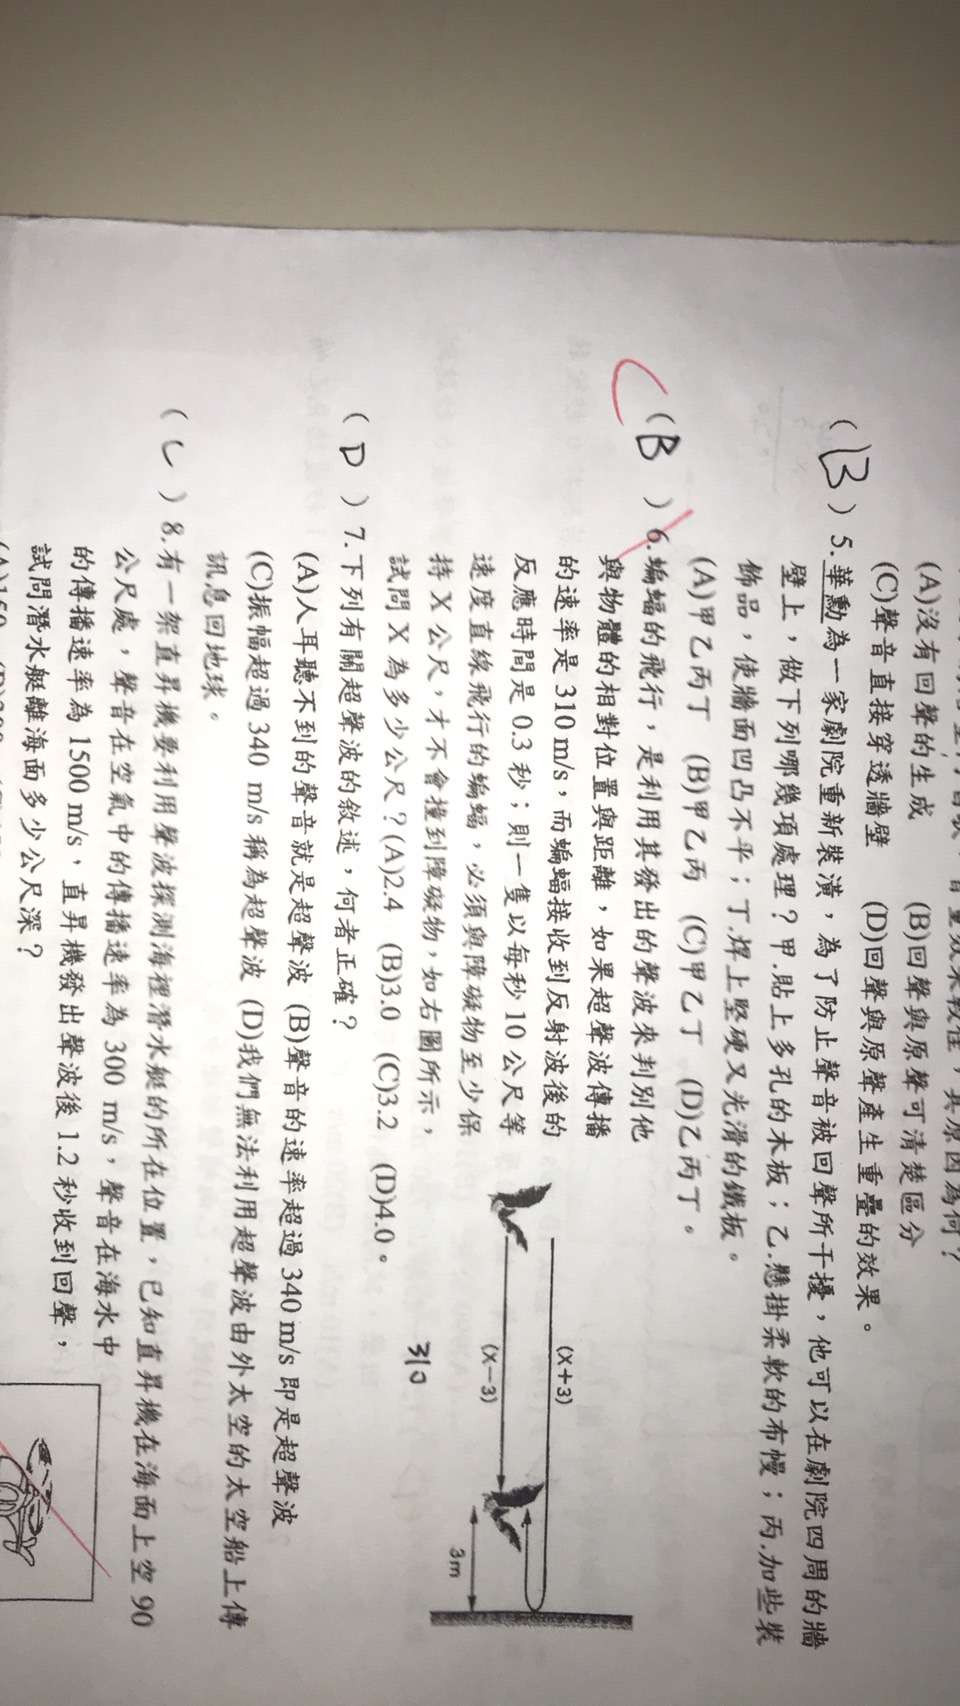 (A)沒有回聲的生成 (B)回聲與原聲可清楚區分
(C)聲音直接穿透牆壁 (D)回聲與原聲產生重疊的效果。
(B) 5.華勳為一家劇院重新裝潢，為了防止聲音被回聲所干擾，他可以在劇院四周的牆
壁上，做下列哪幾項處理？甲.貼上多孔的木板；乙.懸掛柔軟的布幔；丙.加些裝
飾品，使牆面凹凸不平；丁.焊上堅硬又光滑的鐵板。
(A)甲乙丙丁 (B)甲乙丙 (C)甲乙丁 (D)乙丙丁。
C (B) 6.蝙蝠的飛行，是利用其發出的聲波來判別他
與物體的相對位置與距離，如果超聲波傳播
的速率是 310 m/s，而蝙蝠接收到反射波後的
反應時間是 0.3 秒；則一隻以每秒 10 公尺等
速度直線飛行的蝙蝠，必須與障礙物至少保
持 X 公尺，才不會撞到障礙物，如右圖所示，
試問 X 為多少公尺？(A)2.4 (B)3.0 (C)3.2 (D)4.0。
(X+3)
(X−3)
3m
310
(D) 7.下列有關超聲波的敘述，何者正確？
(A)人耳聽不到的聲音就是超聲波 (B)聲音的速率超過 340 m/s 即是超聲波
(C)振幅超過 340 m/s 稱為超聲波 (D)我們無法利用超聲波由外太空的太空船上傳
訊息回地球。
(C) 8.有一架直昇機要利用聲波探測海裡潛水艇的所在位置，已知直昇機在海面上空 90
公尺處，聲音在空氣中的傳播速率為 300 m/s，聲音在海水中
的傳播速率為 1500 m/s，直昇機發出聲波後 1.2 秒收到回聲，
試問潛水艇離海面多少公尺深？